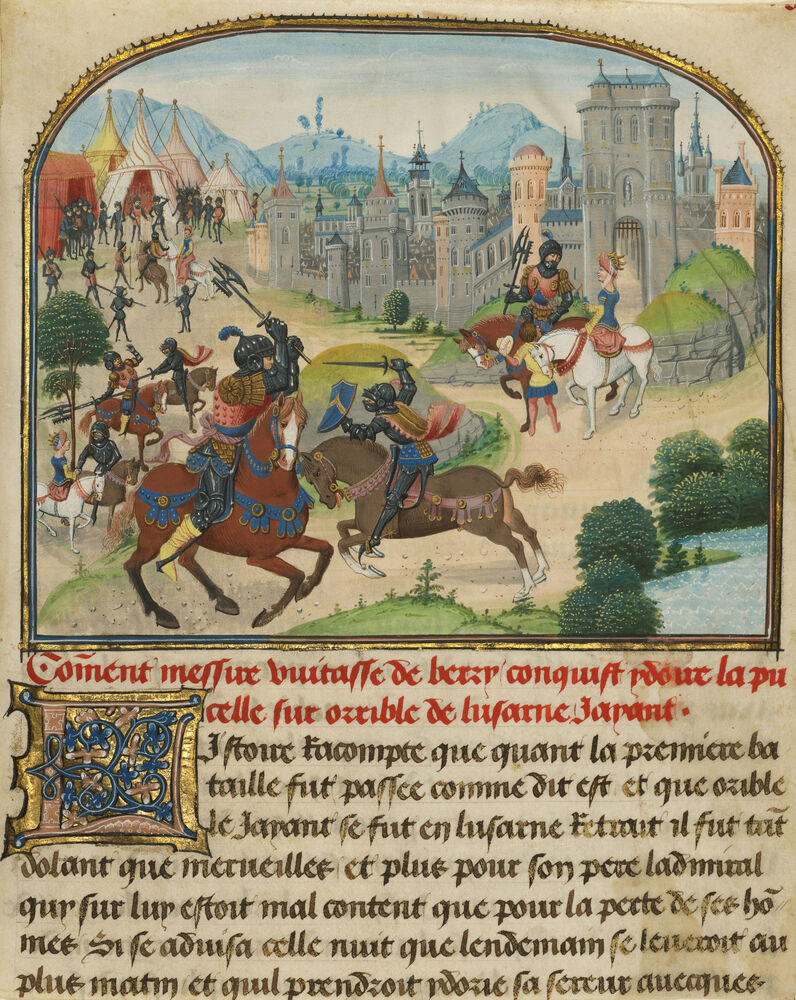 Com̃ent messire vuitasse de berry conquist ydoire la pu
celle sur orrible de lusarne Jayant.
Listoire Racompte que quant la premiere ba
taille fut passee comme dit est et que orible
le Jayant se fut en lusarne Retrait il fut tãt
dolant que merueilles et plus pour son pere ladmiral
quy sur luy estoit mal content que pour la perte de ses hõ
mes Si se aduisa celle nuit que lendemain se leueroit au
plus matin et quil prendroit ydorie sa sereur auecques